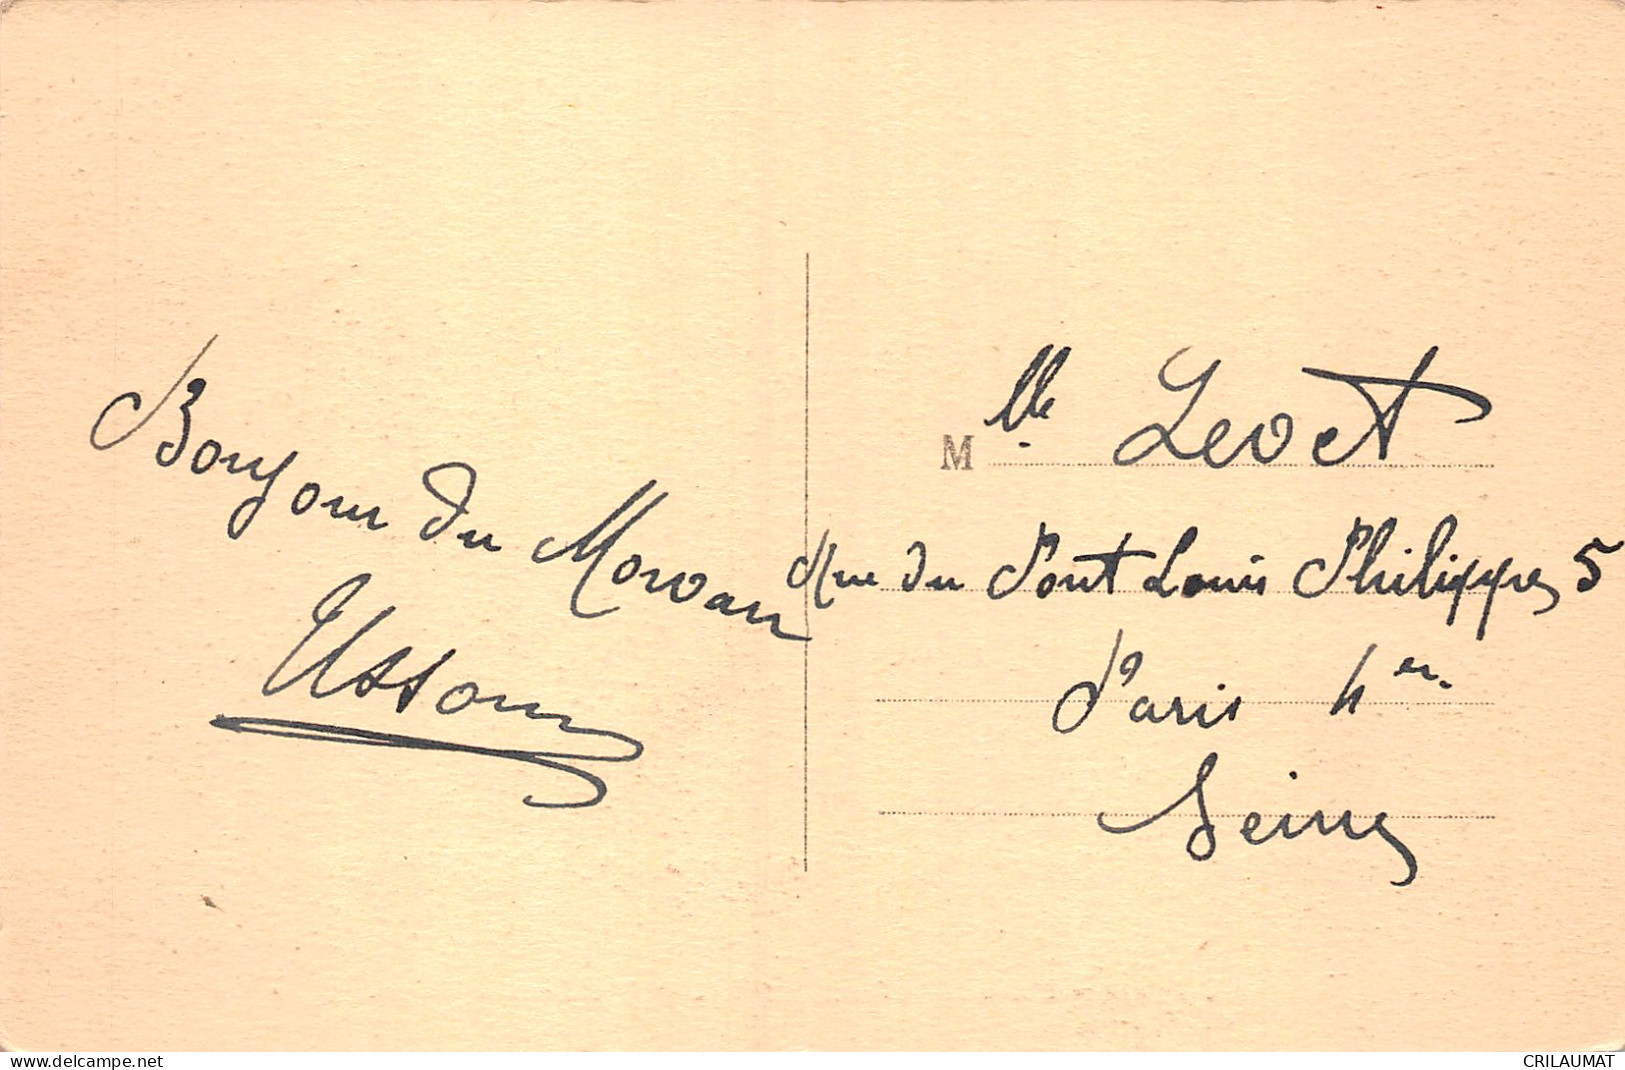 Bonjour du Morvan
Usson
Mlle Levet
Rue du Pont Louis Philippe, 5
Paris 4er.
Seine
www.delcampe.net
CRILAUMAT